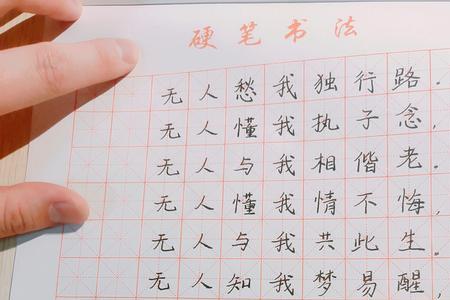 硬笔书法
无人愁我独行路。
无人懂我执子念,
无人与我相偕老。
无人懂我情不悔,
无人与我共此生。
无人知我梦易醒,